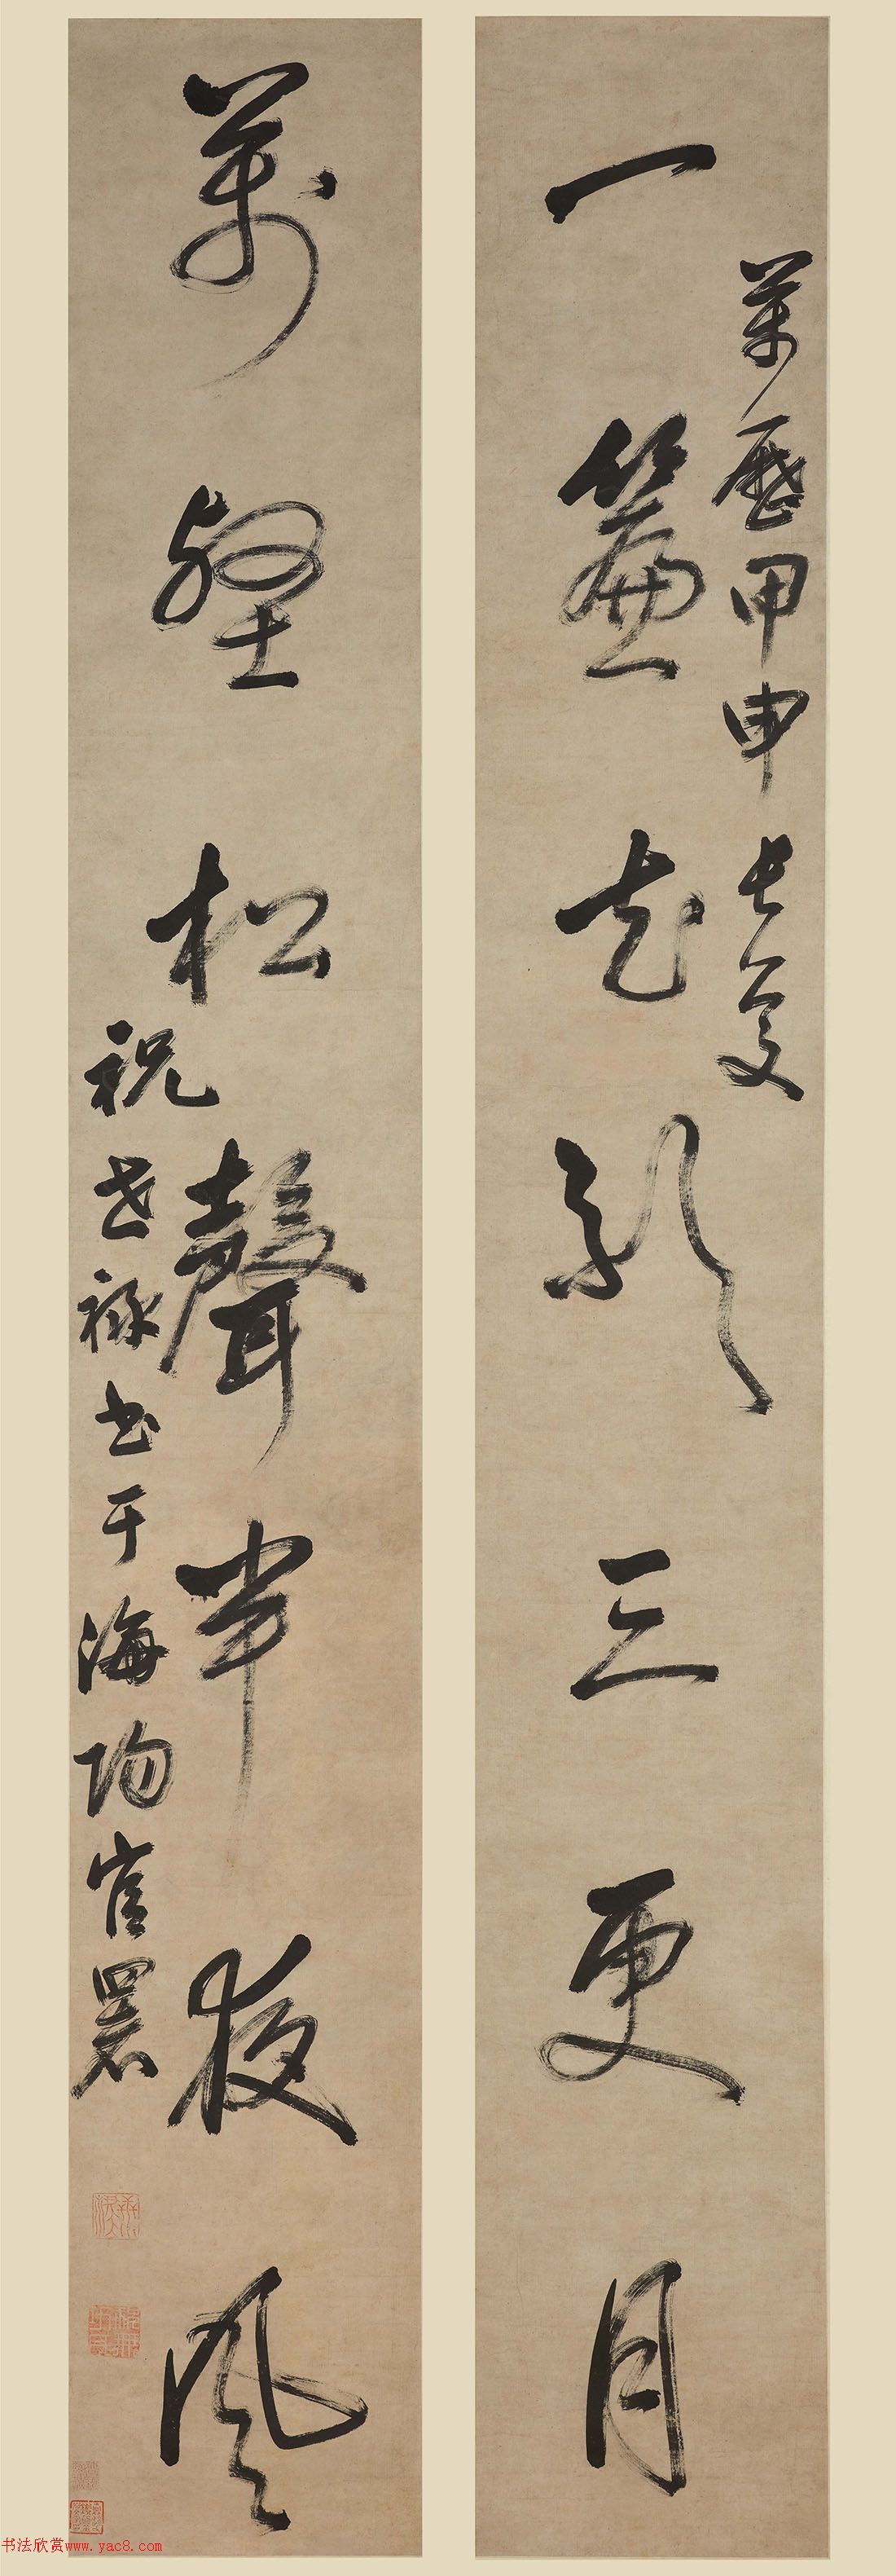 萬曆甲申長夏
一簾花影三更月
萬壑松聲半夜風
祝世祿書于海陽官署
书法欣赏www.yac8.com